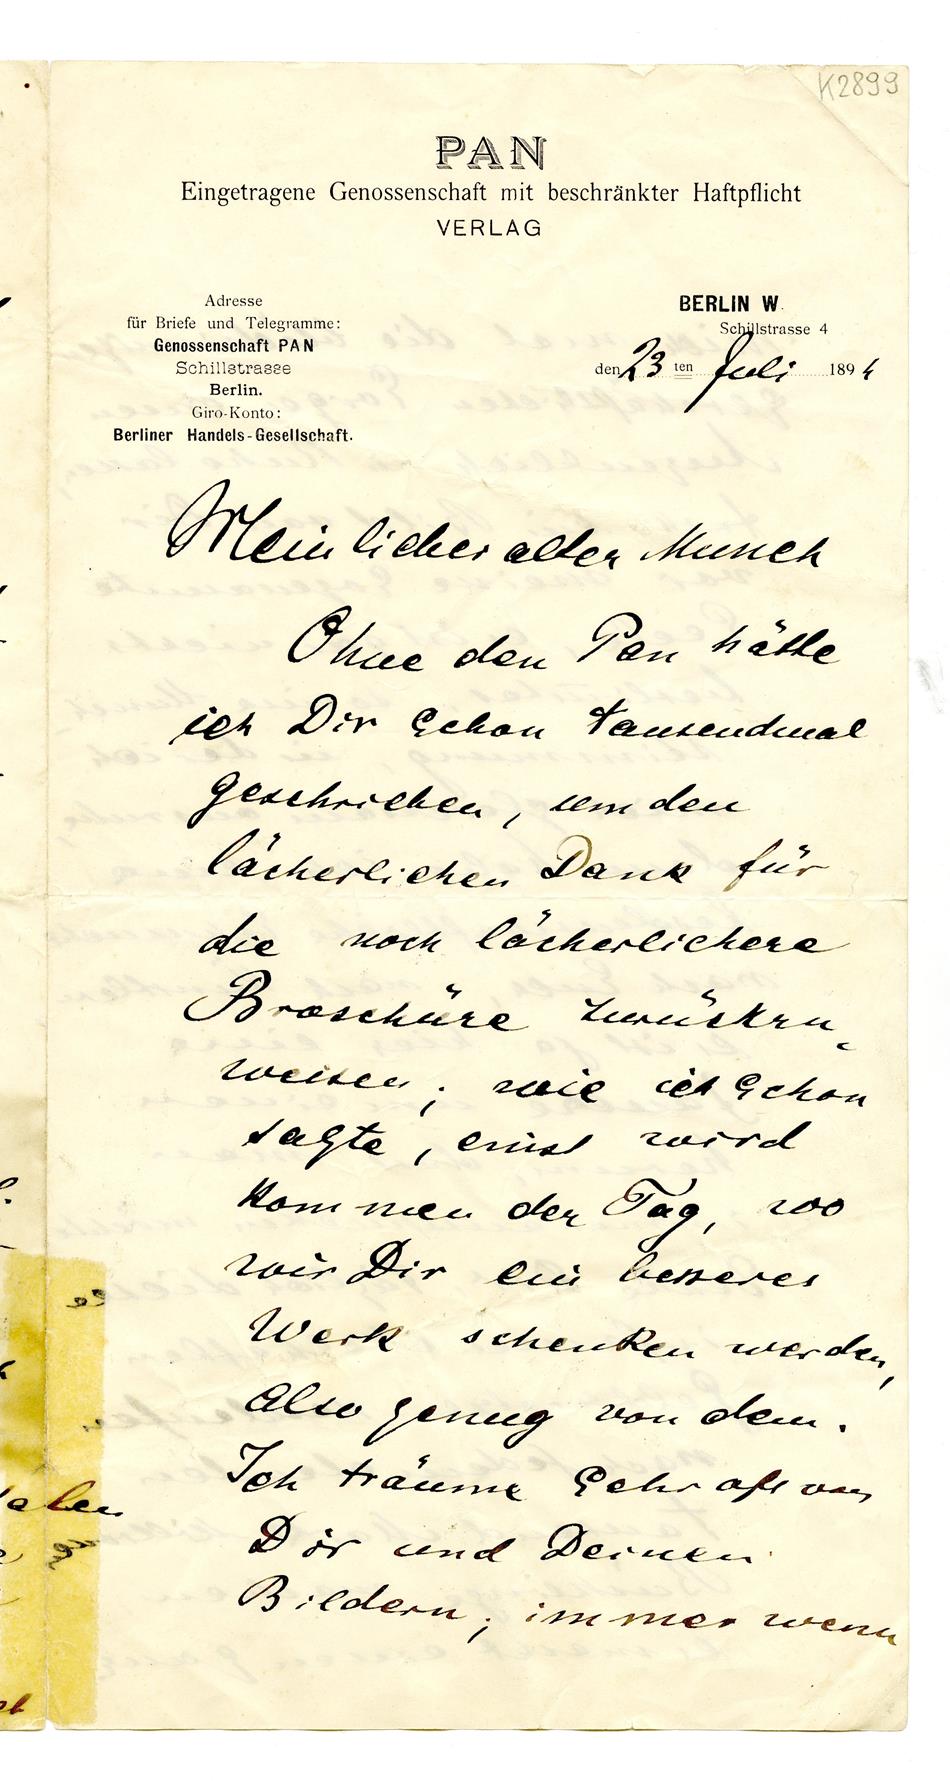 K2899
PAN
Eingetragene Genossenschaft mit beschränkter Haftpflicht
VERLAG
Adresse
für Briefe und Telegramme:
Genossenschaft PAN
Schillstrasse
Berlin.
Giro-Konto:
Berliner Handels-Gesellschaft.
BERLIN W.
Schillstrasse 4
den 23 ten Juli 1894
Mein lieber alter Munch
Ohne den Pan hätte
ich Dir schon tausendmal
geschrieben, um den
lächerlichen Dank für
die noch lächerlichere
Broschüre zurückzu-
weisen; wie ich schon
sagte, einst wird
kommen der Tag, wo
wir Dir ein besseres
Werk schenken werden,
Also genug von dem.
Ich träume sehr oft von
Dir und Deinen
Bildern; immer wenn